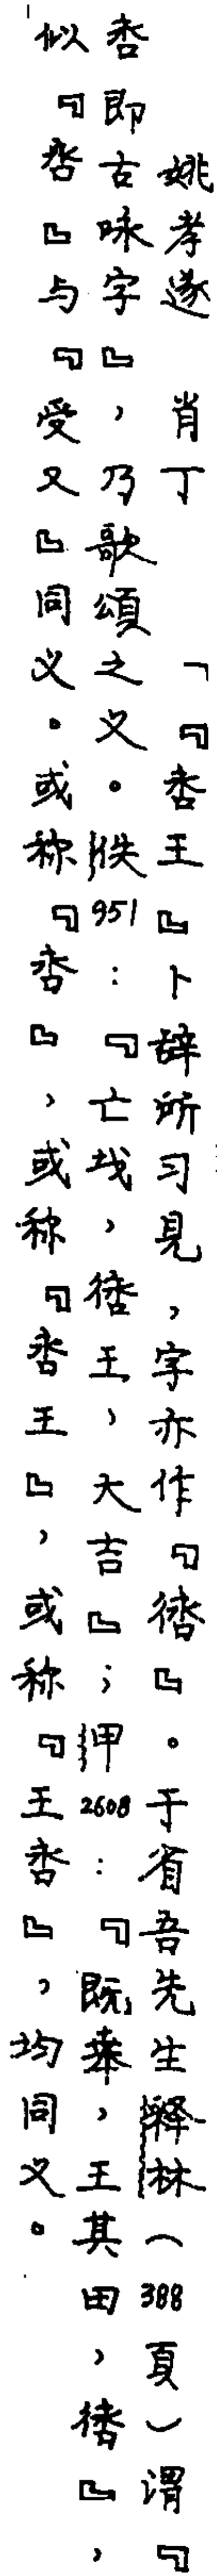 姚孝遂　肖丁　「『㞢王』卜辞所习見，字亦作『徣』。于省吾先生释林（388頁）謂『
即古咏字』，乃歌頌之义。佚951：『亡𢦔，徣王，大吉』；押2608：『既㚔，王其田，徣』，
似『㞢』与『受又』同义。或称『』，或称『王』，或称『王』，均同义。